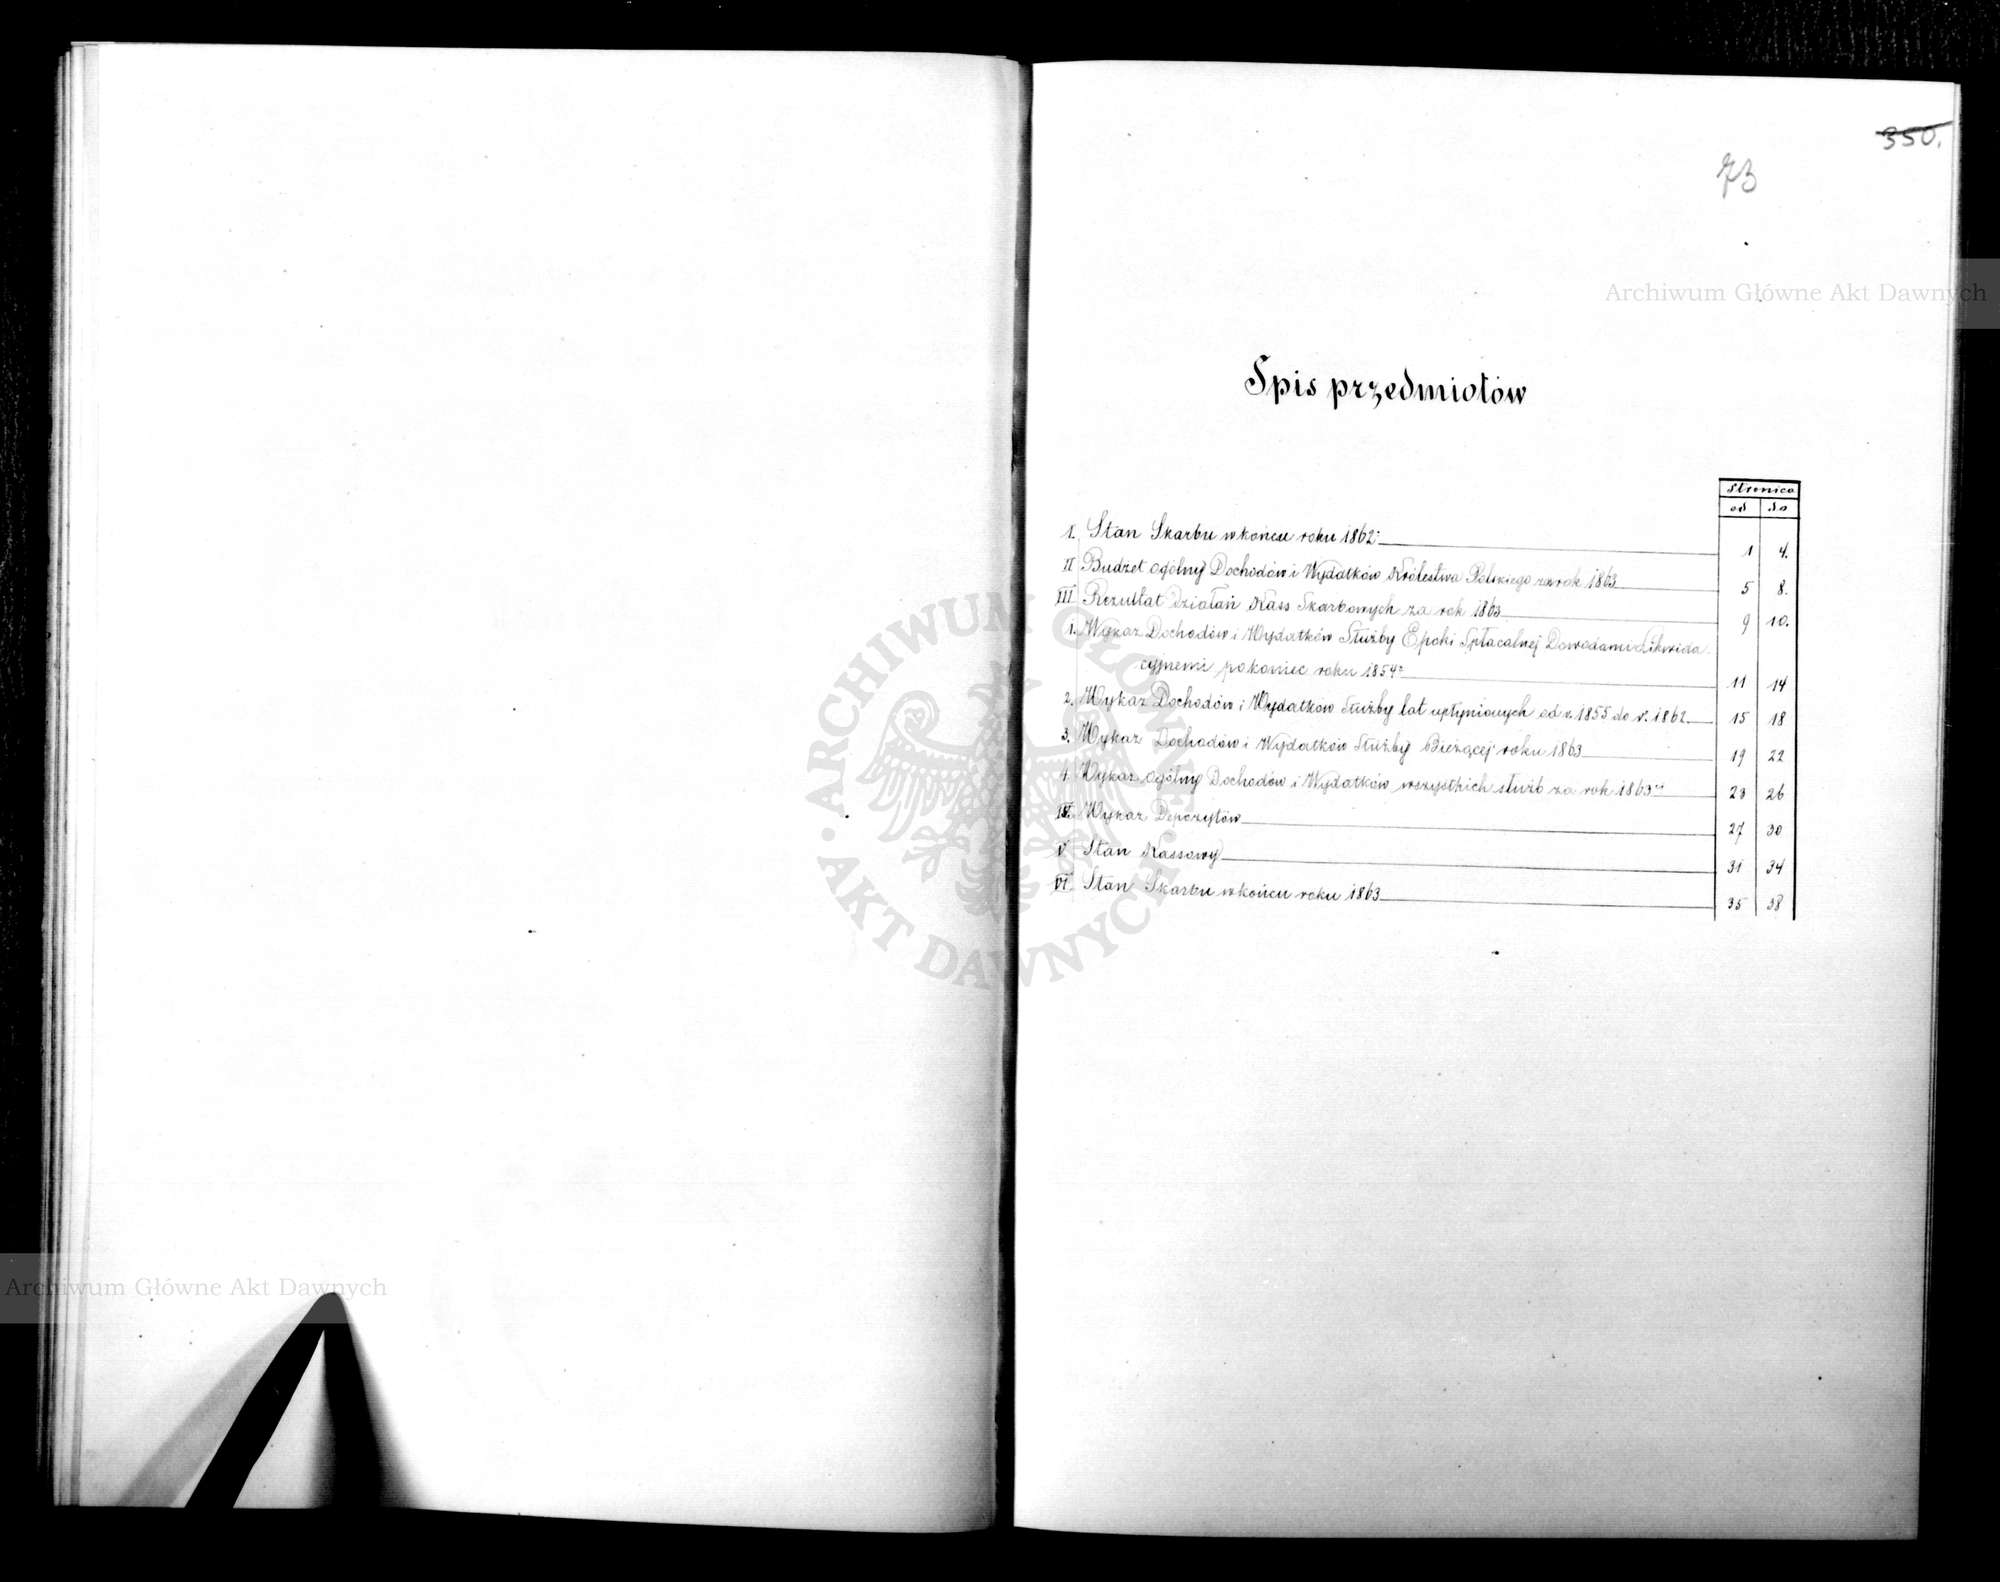 350.
73
Archiwum Główne Akt Dawnych
Spis przedmiotów
Stronica
od do
I. Stan Skarbu w końcu roku 1862 1 4.
II Budżet ogólny Dochodów i Wydatków Królestwa Polskiego za rok 1863 5 8.
III Rezultat działań Kass Skarbowych za rok 1863 9 10.
1. Wykaz Dochodów i Wydatków Służby Epoki Spłacalnej Dowodami Likwida
cyjnemi po koniec roku 1854 11 14
2. Wykaz Dochodów i Wydatków Służby lat upłynionych od r. 1855 do r. 1862 15 18
3. Wykaz Dochodów i Wydatków Służby Bieżącej roku 1863 19 22
4. Wykaz ogólny Dochodów i Wydatków wszystkich służb za rok 1863 23 26
IV. Wykaz Depozytów 27 30
V Stan Kassowy 31 34
VI Stan Skarbu w końcu roku 1863 35 38
ARCHIWUM GŁÓWNE
AKT DAWNYCH
Archiwum Główne Akt Dawnych